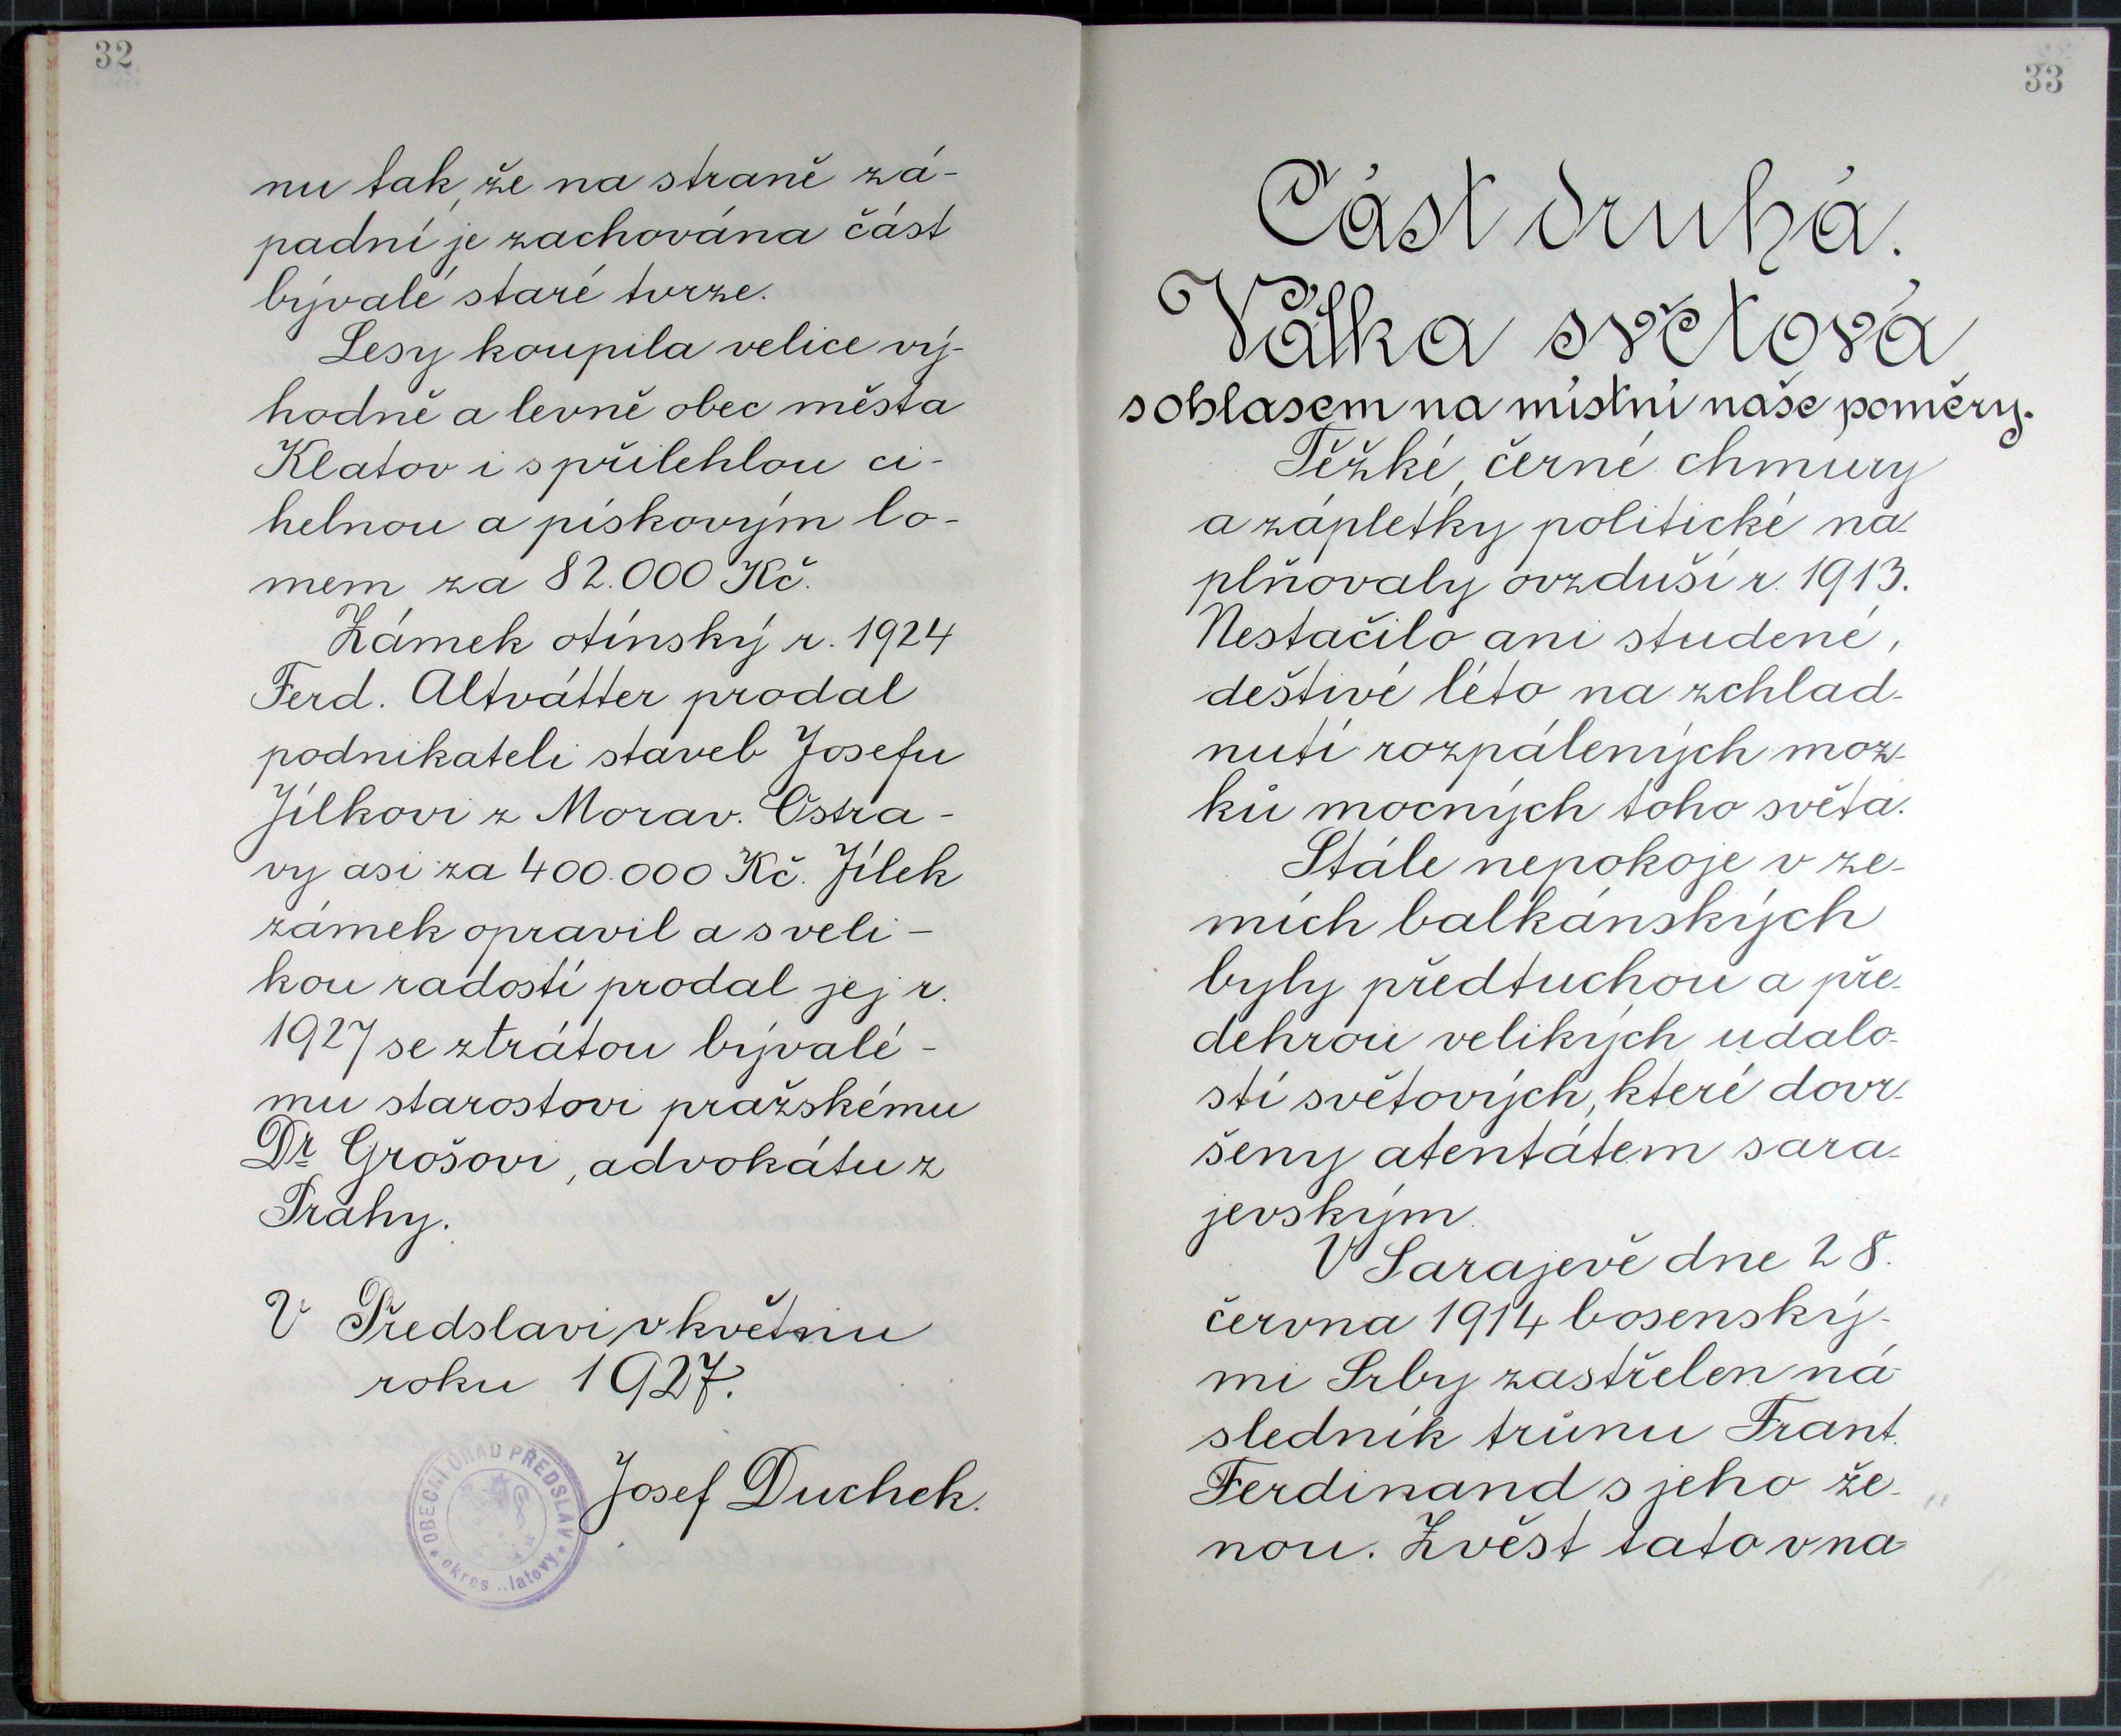 32
nu tak, že na straně zá-
padní je zachována část
bývalé staré tvrze.
Lesy koupila velice vý-
hodně a levně obec města
Klatov i s přilehlou ci-
helnou a pískovým lo-
mem za 82.000 Kč.
Zámek otínský r. 1924
Ferd. Altvátter prodal
podnikateli staveb Josefu
Jílkovi z Morav. Ostra-
vy asi za 400.000 Kč. Jílek
zámek opravil a s veli-
kou radostí prodal jej r.
1927 se ztrátou bývalé-
mu starostovi pražskému
Dr Grošovi, advokátu z
Prahy.
V Předslavi, v květnu
roku 1927.
Josef Duchek.
OBECNÍ ÚŘAD PŘEDSLAV
okres ..latovy
33
Část druhá.
Válka světová
s ohlasem na místní naše poměry.
Těžké, černé chmury
a zápletky politické na-
plňovaly ovzduší r. 1913.
Nestačilo ani studené,
deštivé léto na zchlad-
nutí rozpálených moz-
ků mocných toho světa.
Stále nepokoje v ze-
mích balkánských
byly předtuchou a pře-
dehrou velikých udalo-
stí světových, které dovr-
šeny atentátem sara-
jevským.
V Sarajevě dne 28.
června 1914 bosenský-
mi Srby zastřelen ná-
sledník trůnu Frant.
Ferdinand s jeho že-
nou. Zvěst tato v na-